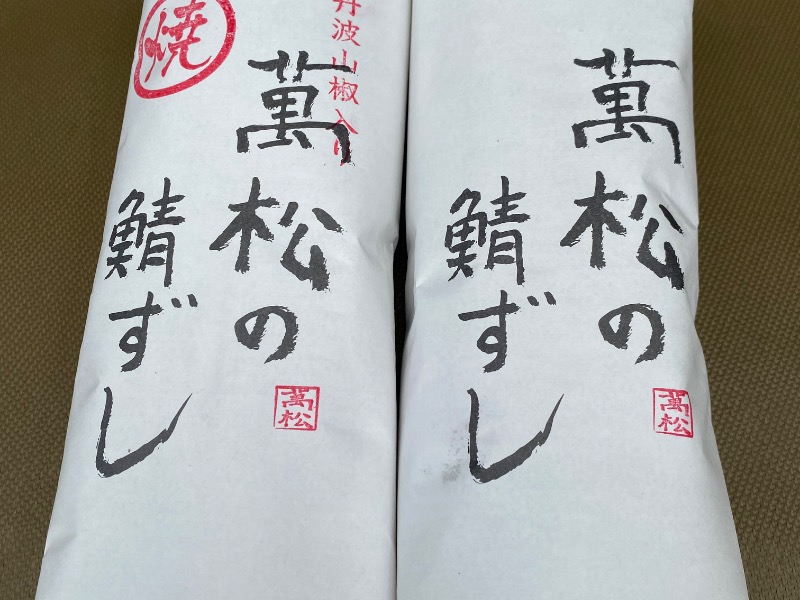 焼
丹波山椒入り
萬松の
鯖ずし
萬松
萬松の
鯖ずし
萬松